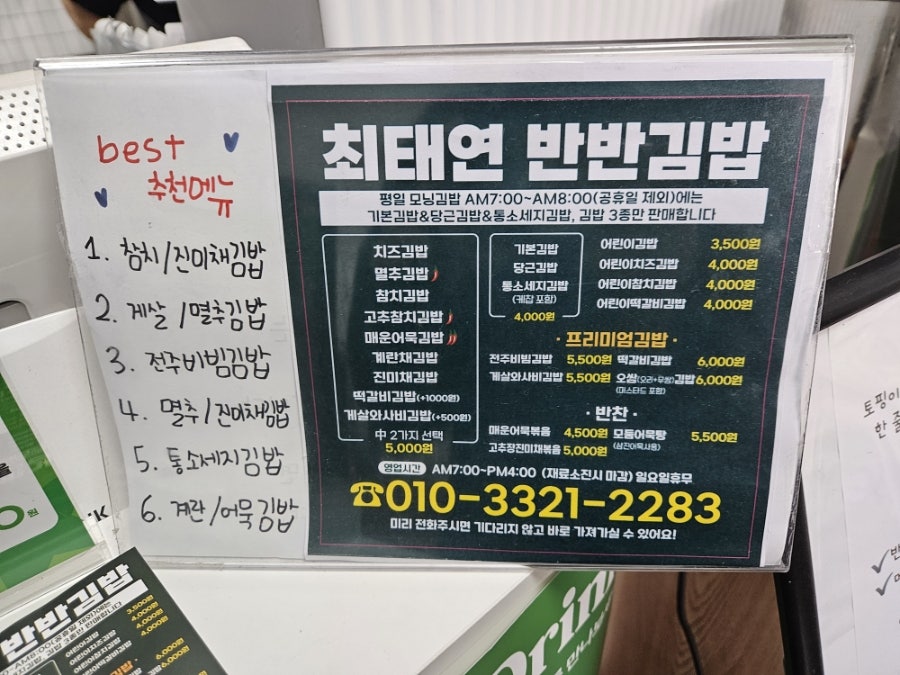 best
추천메뉴
1. 참치/진미채김밥
2. 게살/멸추김밥
3. 전주비빔김밥
4. 멸추/진미채김밥
5. 통소세지김밥
6. 계란/어묵김밥
최태연 반반김밥
평일 모닝김밥 AM7:00~AM8:00(공휴일 제외)에는
기본김밥&당근김밥&통소세지김밥, 김밥 3종만 판매합니다
치즈김밥
멸추김밥
참치김밥
고추참치김밥
매운어묵김밥
계란채김밥
진미채김밥
떡갈비김밥(+1000원)
게살와사비김밥(+500원)
中 2가지 선택
5,000원
기본김밥
당근김밥
통소세지김밥
(케찹 포함)
4,000원
어린이김밥 3,500원
어린이치즈김밥 4,000원
어린이참치김밥 4,000원
어린이떡갈비김밥 4,000원
· 프리미엄김밥 ·
전주비빔김밥 5,500원 떡갈비김밥 6,000원
게살와사비김밥 5,500원 오쌈(오리+무쌈)김밥 6,000원
(머스타드 포함)
· 반찬 ·
매운어묵볶음 4,500원 모둠어묵탕 5,500원
고추장진미채볶음 5,000원 (삼진어묵사용)
영업시간 AM7:00~PM4:00 (재료소진시 마감) 일요일휴무
☎010-3321-2283
미리 전화주시면 기다리지 않고 바로 가져가실 수 있어요!
반반김밥
3,500원
4,000원
4,000원
4,000원
6,000원
토핑이
한 줄